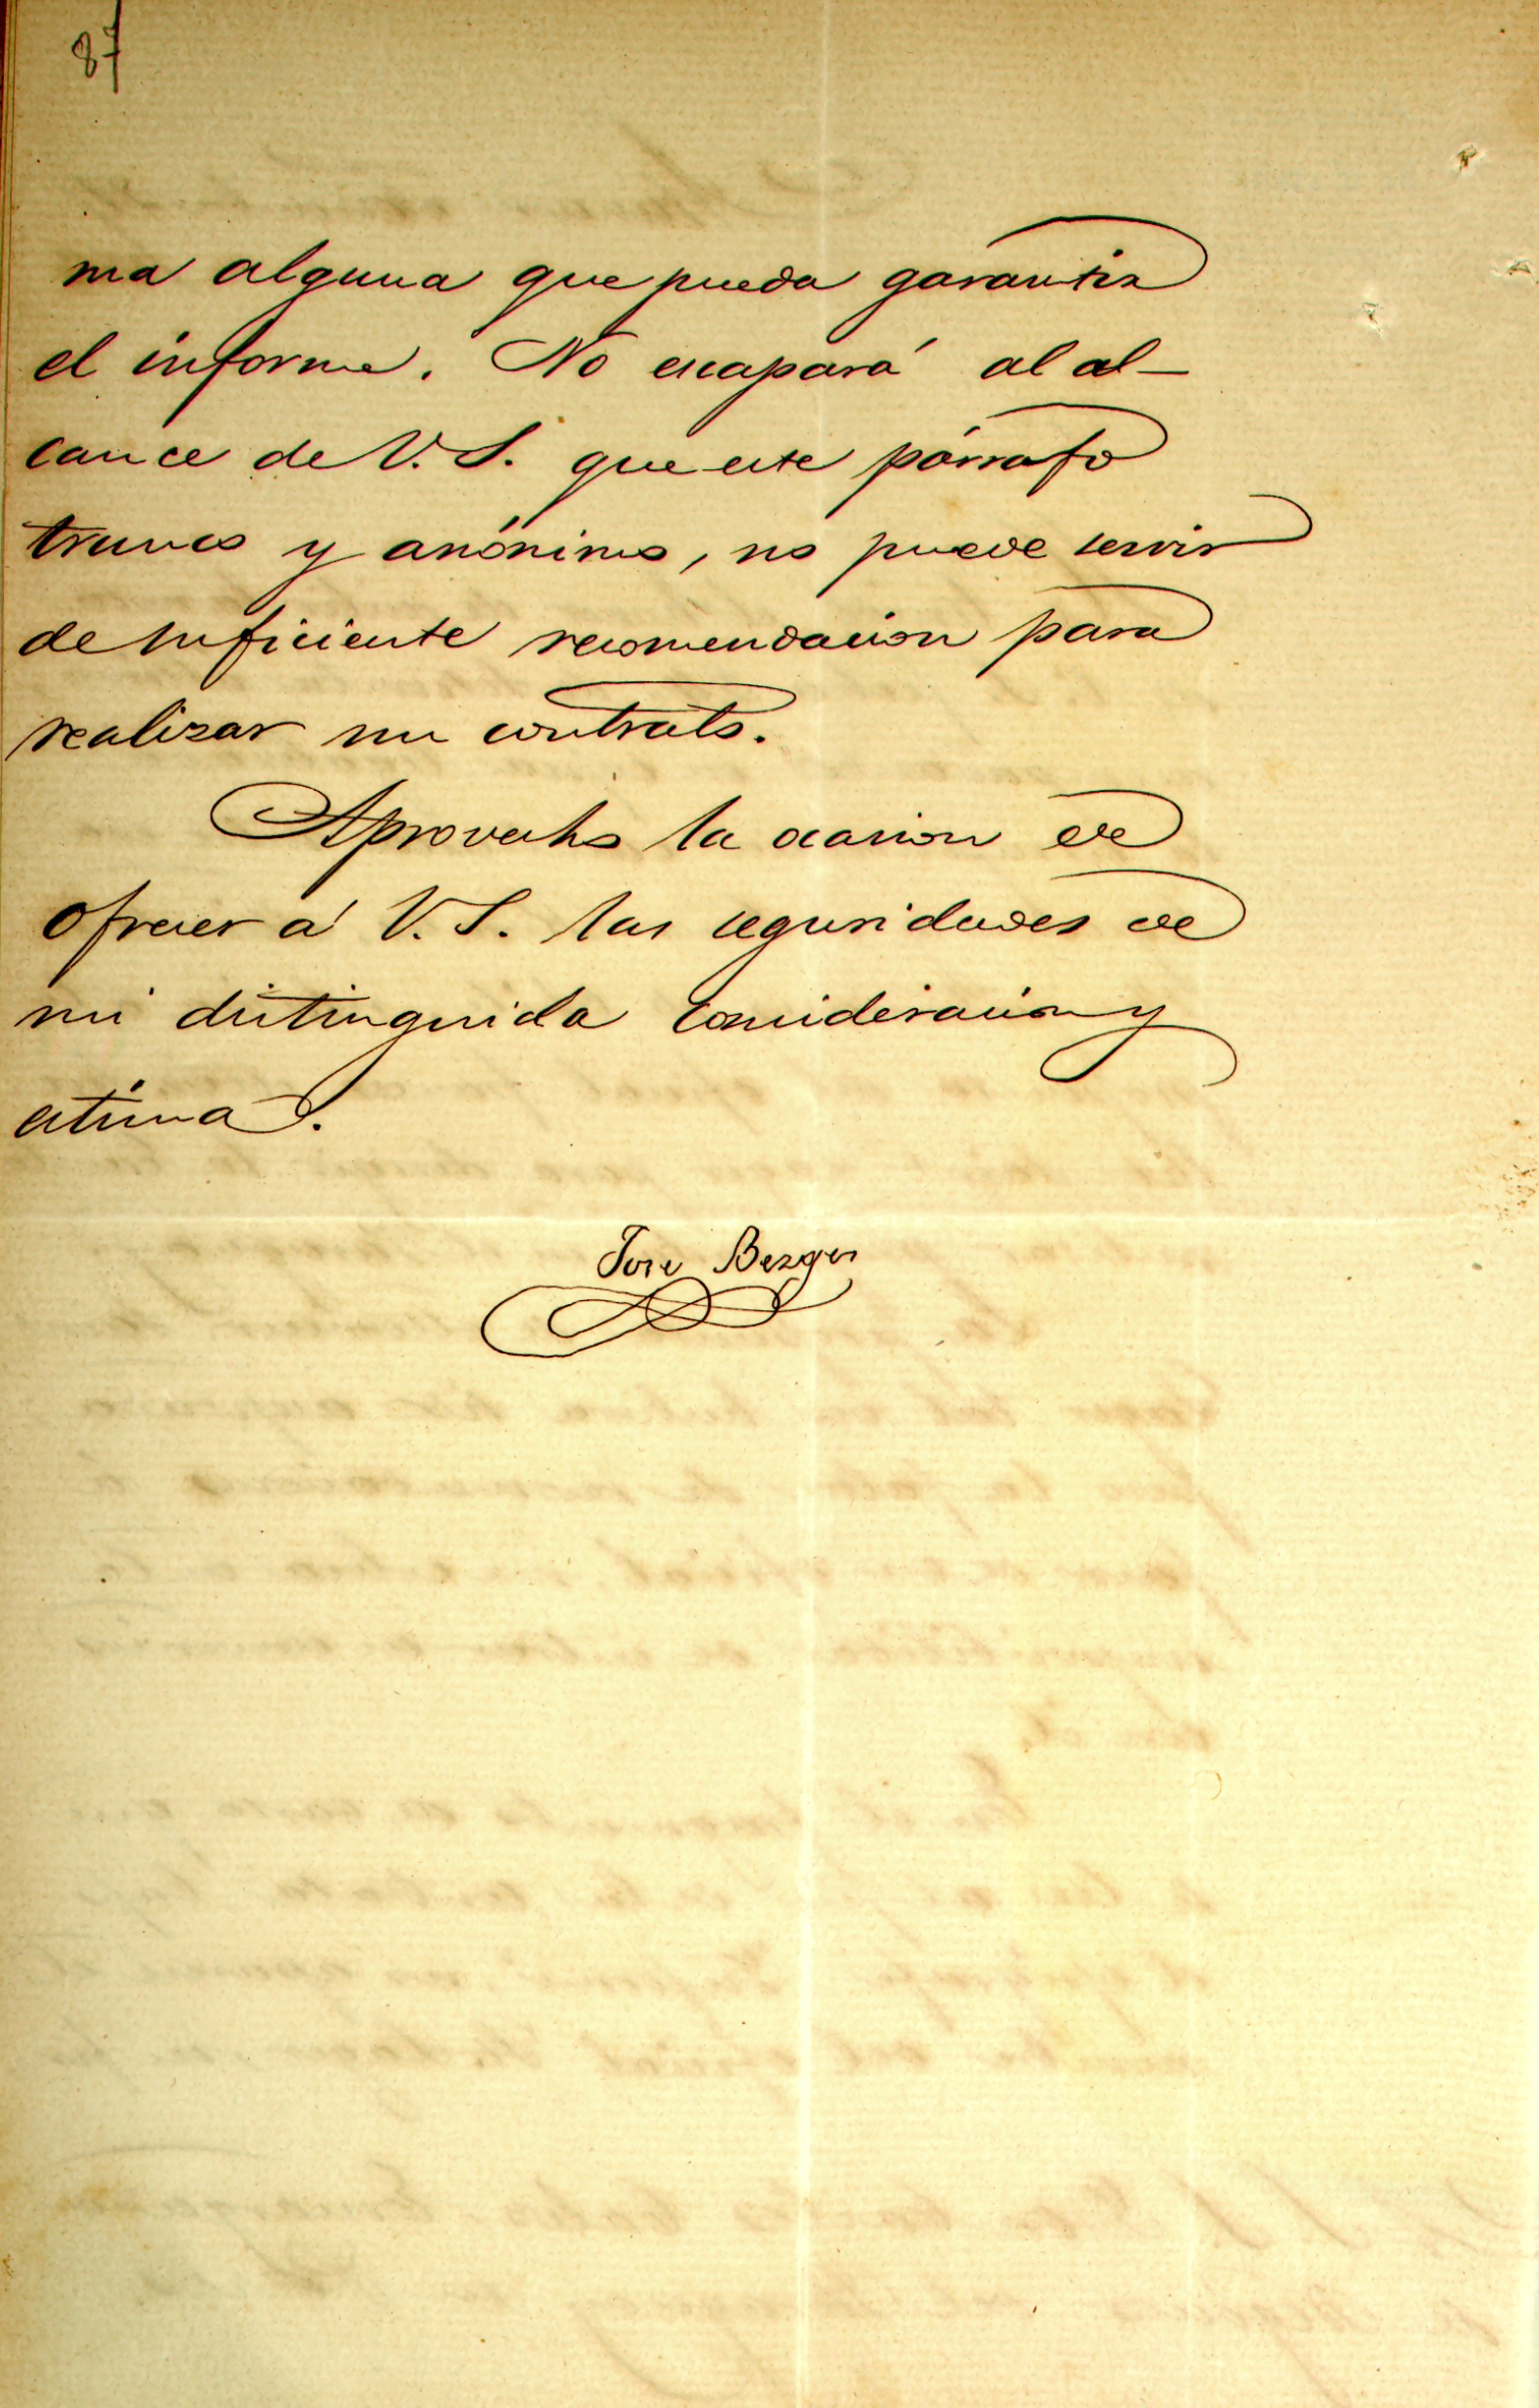 87
ma alguna que pueda garantir
el informe. No escapará al al-
cance de V. S. que este párrafo
trunco y anónimo, no puede servir
de suficiente recomendacion para
realizar un contrato.
Aprovecho la ocasion de
ofrecer á V. S. las seguridades de
mi distinguida consideracion y
estima.
Jose Berger